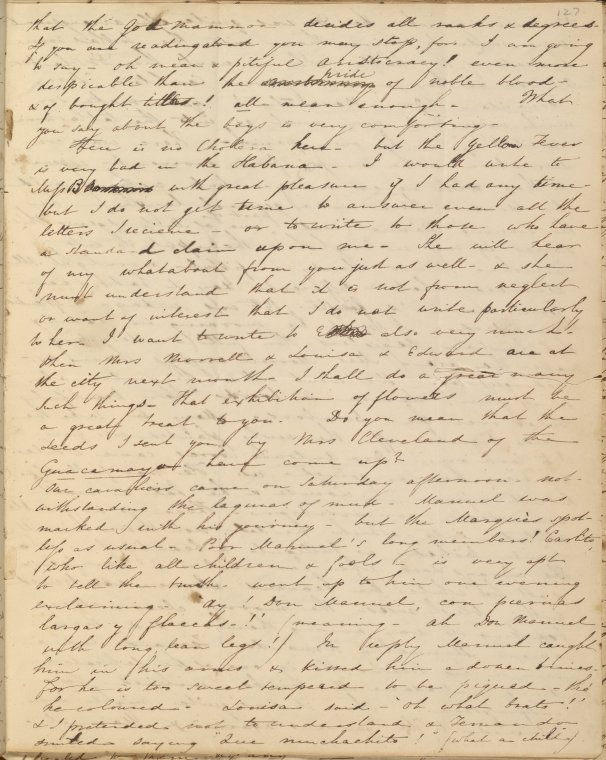 127
that the God Mammon decides all ranks & degrees
If you are reading aloud you may stop, for I am going
to say - oh mean & pitiful aristocracy! even more
despicable than the pride of noble blood -
& of bought titles! all mean enough - What
you say about the boys is very comforting -
There is no Cholera here - but the Yellow Fever
is very bad in the Habana - I would write to
Miss B with great pleasure if I had any time -
but I do not get time to answer even all the
letters I recieve - or to write to those who have
a standard claim upon me - She will hear
of my whatabout from you just as well - & she
must understand that it is not from neglect
or want of interest that I do not write particularly
to her. I want to write to E also very much -
When Mrs Morrell & Louisa & Edward are at
the city next month I shall do a great many
such things - That exhibition of flowers must be
a great treat to you. Do you mean that the
seeds I sent you by Mrs Cleveland of the
Guacamaya have come up?
Our cavaliers came on Saturday afternoon not-
withstanding the lagunas of mud - Manuel was
marked with his journey - but the Marquis spot-
less as usual - Poor Manuel's long members! Carlito,
(who like all children & fools) is very apt
to tell the truth went up to him one evening
exclaiming - "Ay! Don Manuel, con piernas
largas y flaccas -!!" (meaning - ah Don Manuel
with long lean legs!) In reply Manuel caught
him in his arms & kissed him a dozen times -
for he is too sweet tempered to be piqued - tho'
he coloured - Louisa said - "oh what brats!"
& I pretended not to understand & Fernando
smiled saying "Que muchachito!" (what a child)